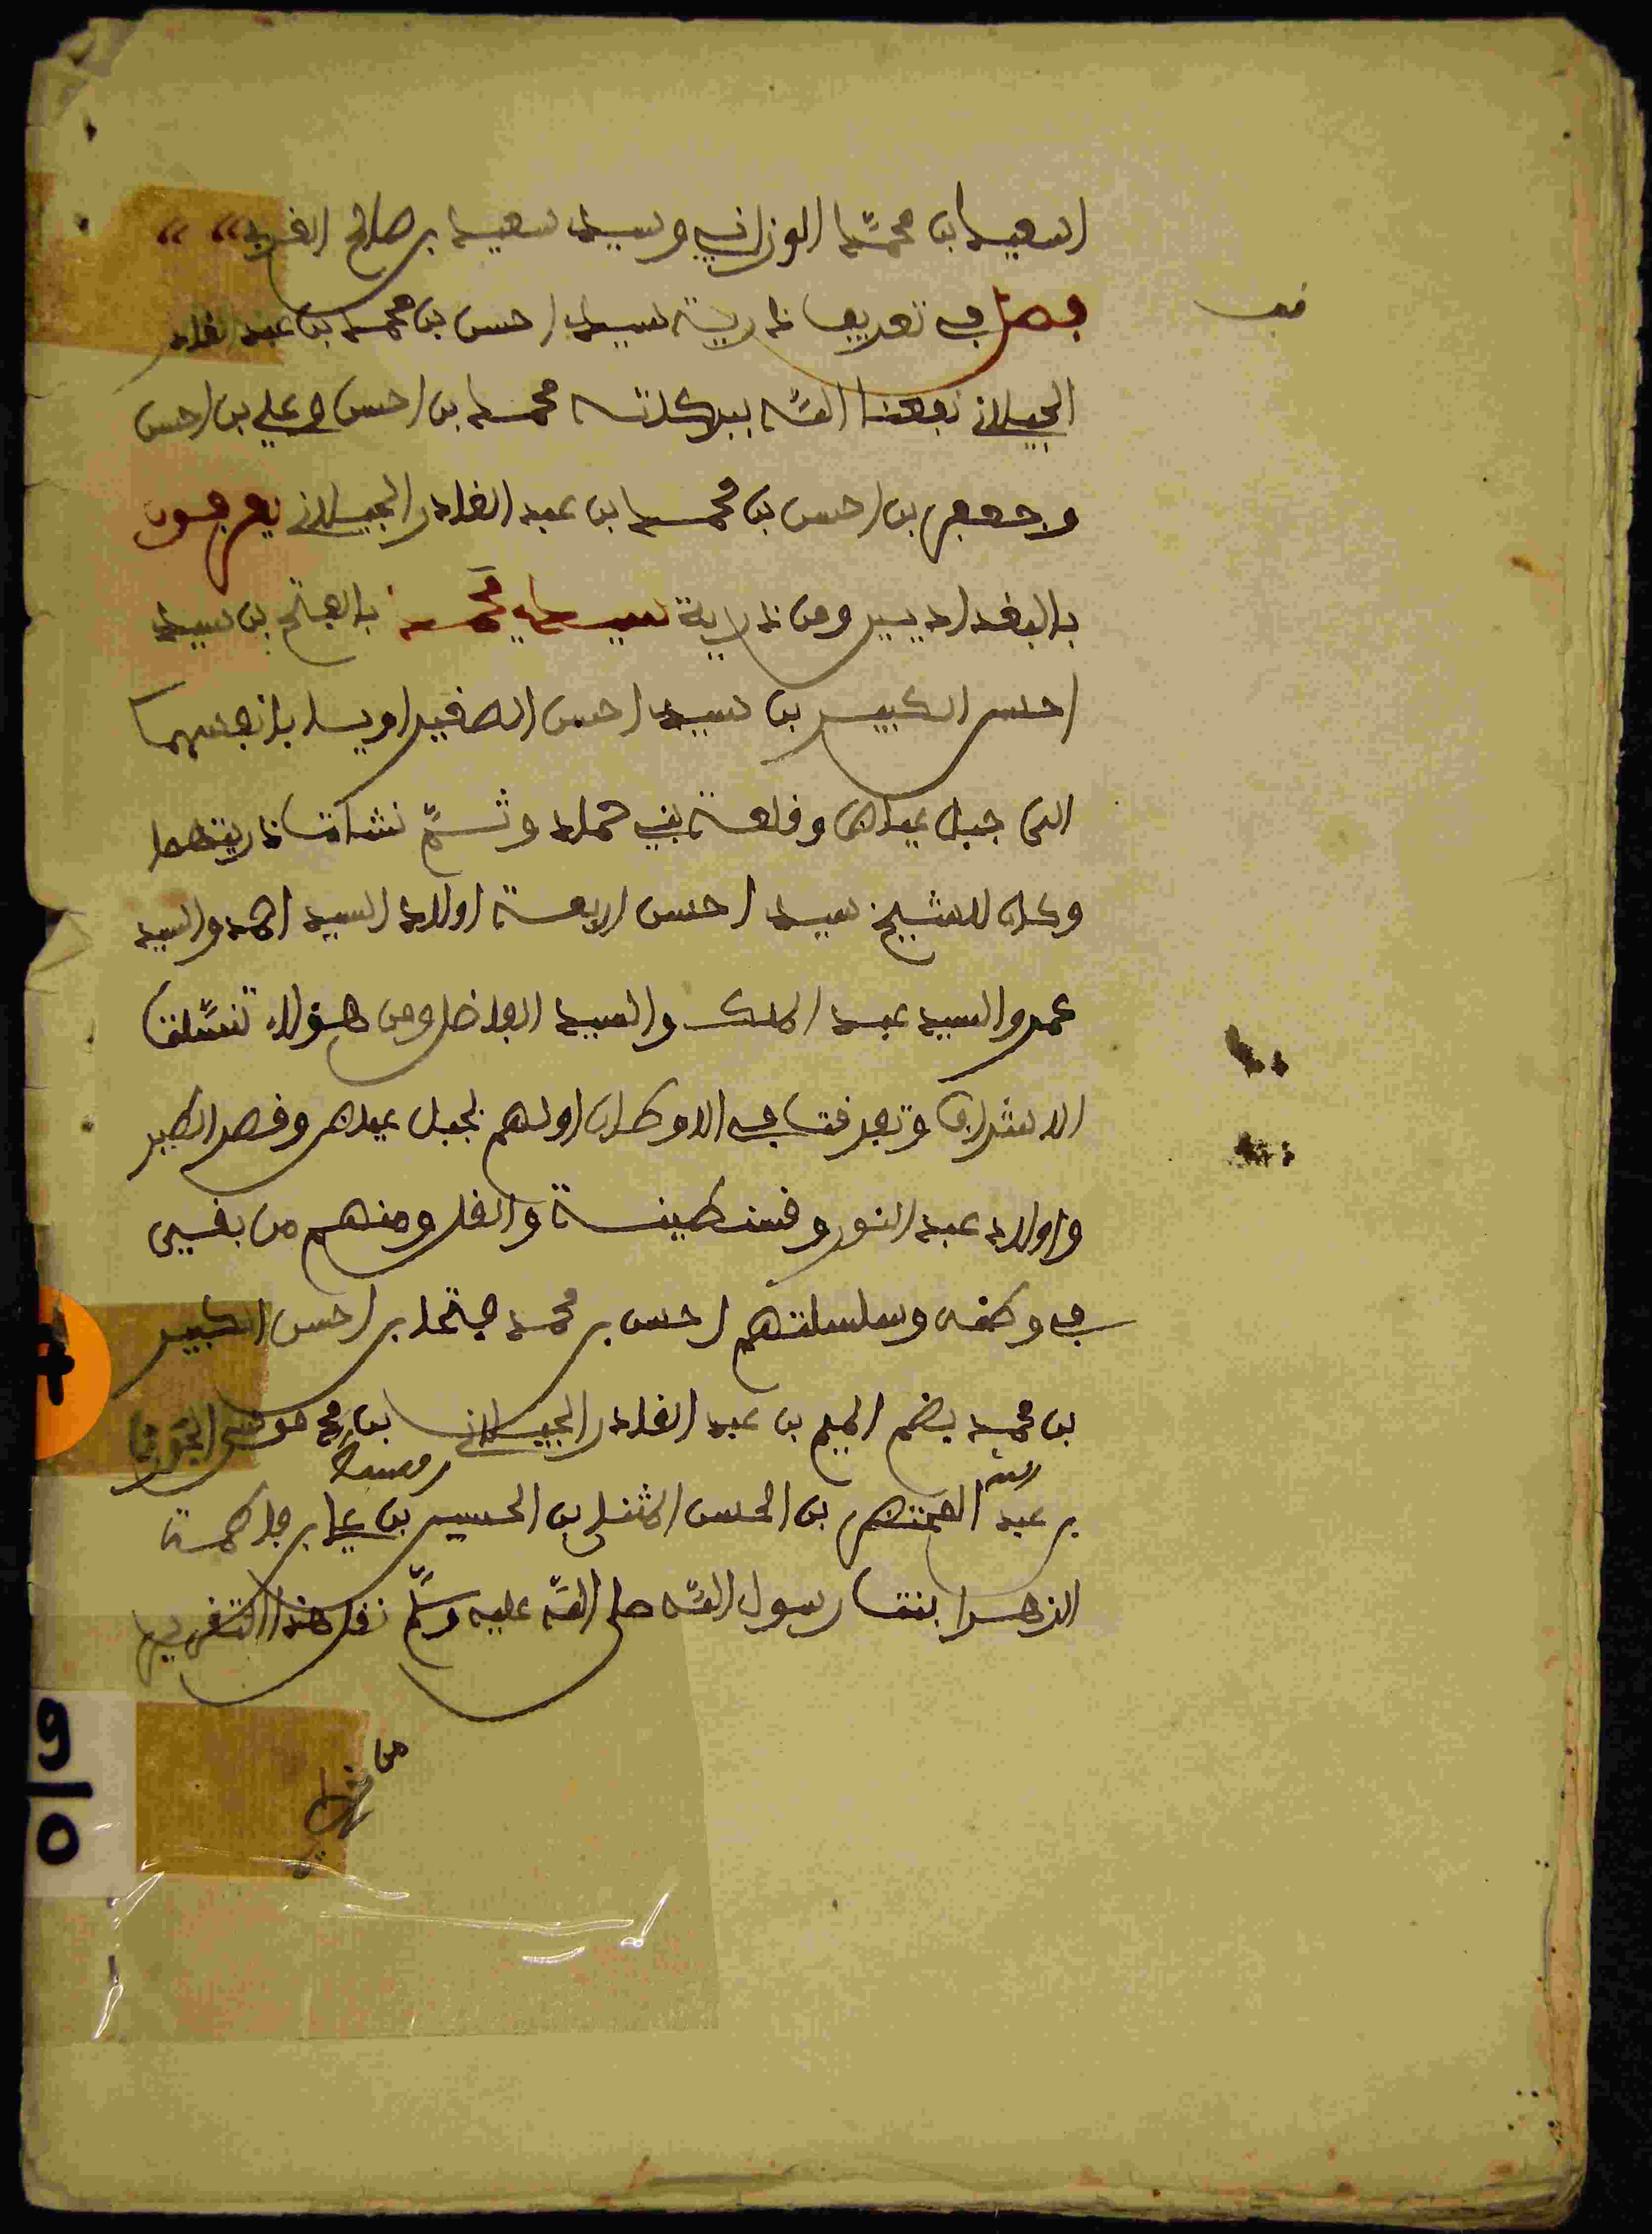 السعيد بن محمّد الوزاني وسيد سعيد بن صالح
قف
فصل في تعريف ذرية سيد احسن بن محمد بن عبد القادر
الجيلاني نفعنا اللّه ببركاته محمد بن احسن وعلي بن احسن
وجعفر بن احسن بن محمد بن عبد القادر الجيلاني يعرفون
بالبغداديين ومن ذرية سيدي محمد بالفتح بن سيد
احسن الكبير بن سيد احسن الصغير اويسا بانفسهما
الى جبل عياض وقلعة بني حماد وثمّ نشات ذريتهما
وكان للشيخ سيد احسن اربعة اولاد السيد احمد والسيد
عمر والسيد عبد الملك والسيد الفاضل ومن هؤلاء تنسّلت
الاشراف وتفرقت في الاوطان اولهم بجبل عياض وقصر الطير
واولاد عبد النور وقسنطينة والقل ومنهم من بقيى
في وطنه وسلسلتهم احسن بن محمد فتحا بن احسن الكبير
بن محمد بضم الميم بن عبد القادر الجيلاني بن موسى الجون
بن عبد اللّه بن الحسن المثنى بن الحسين بن علي بن فاطمة
الزهرا بنت رسول اللّه صلى اللّه عليه وسلّم نقل هذا التقرير
من